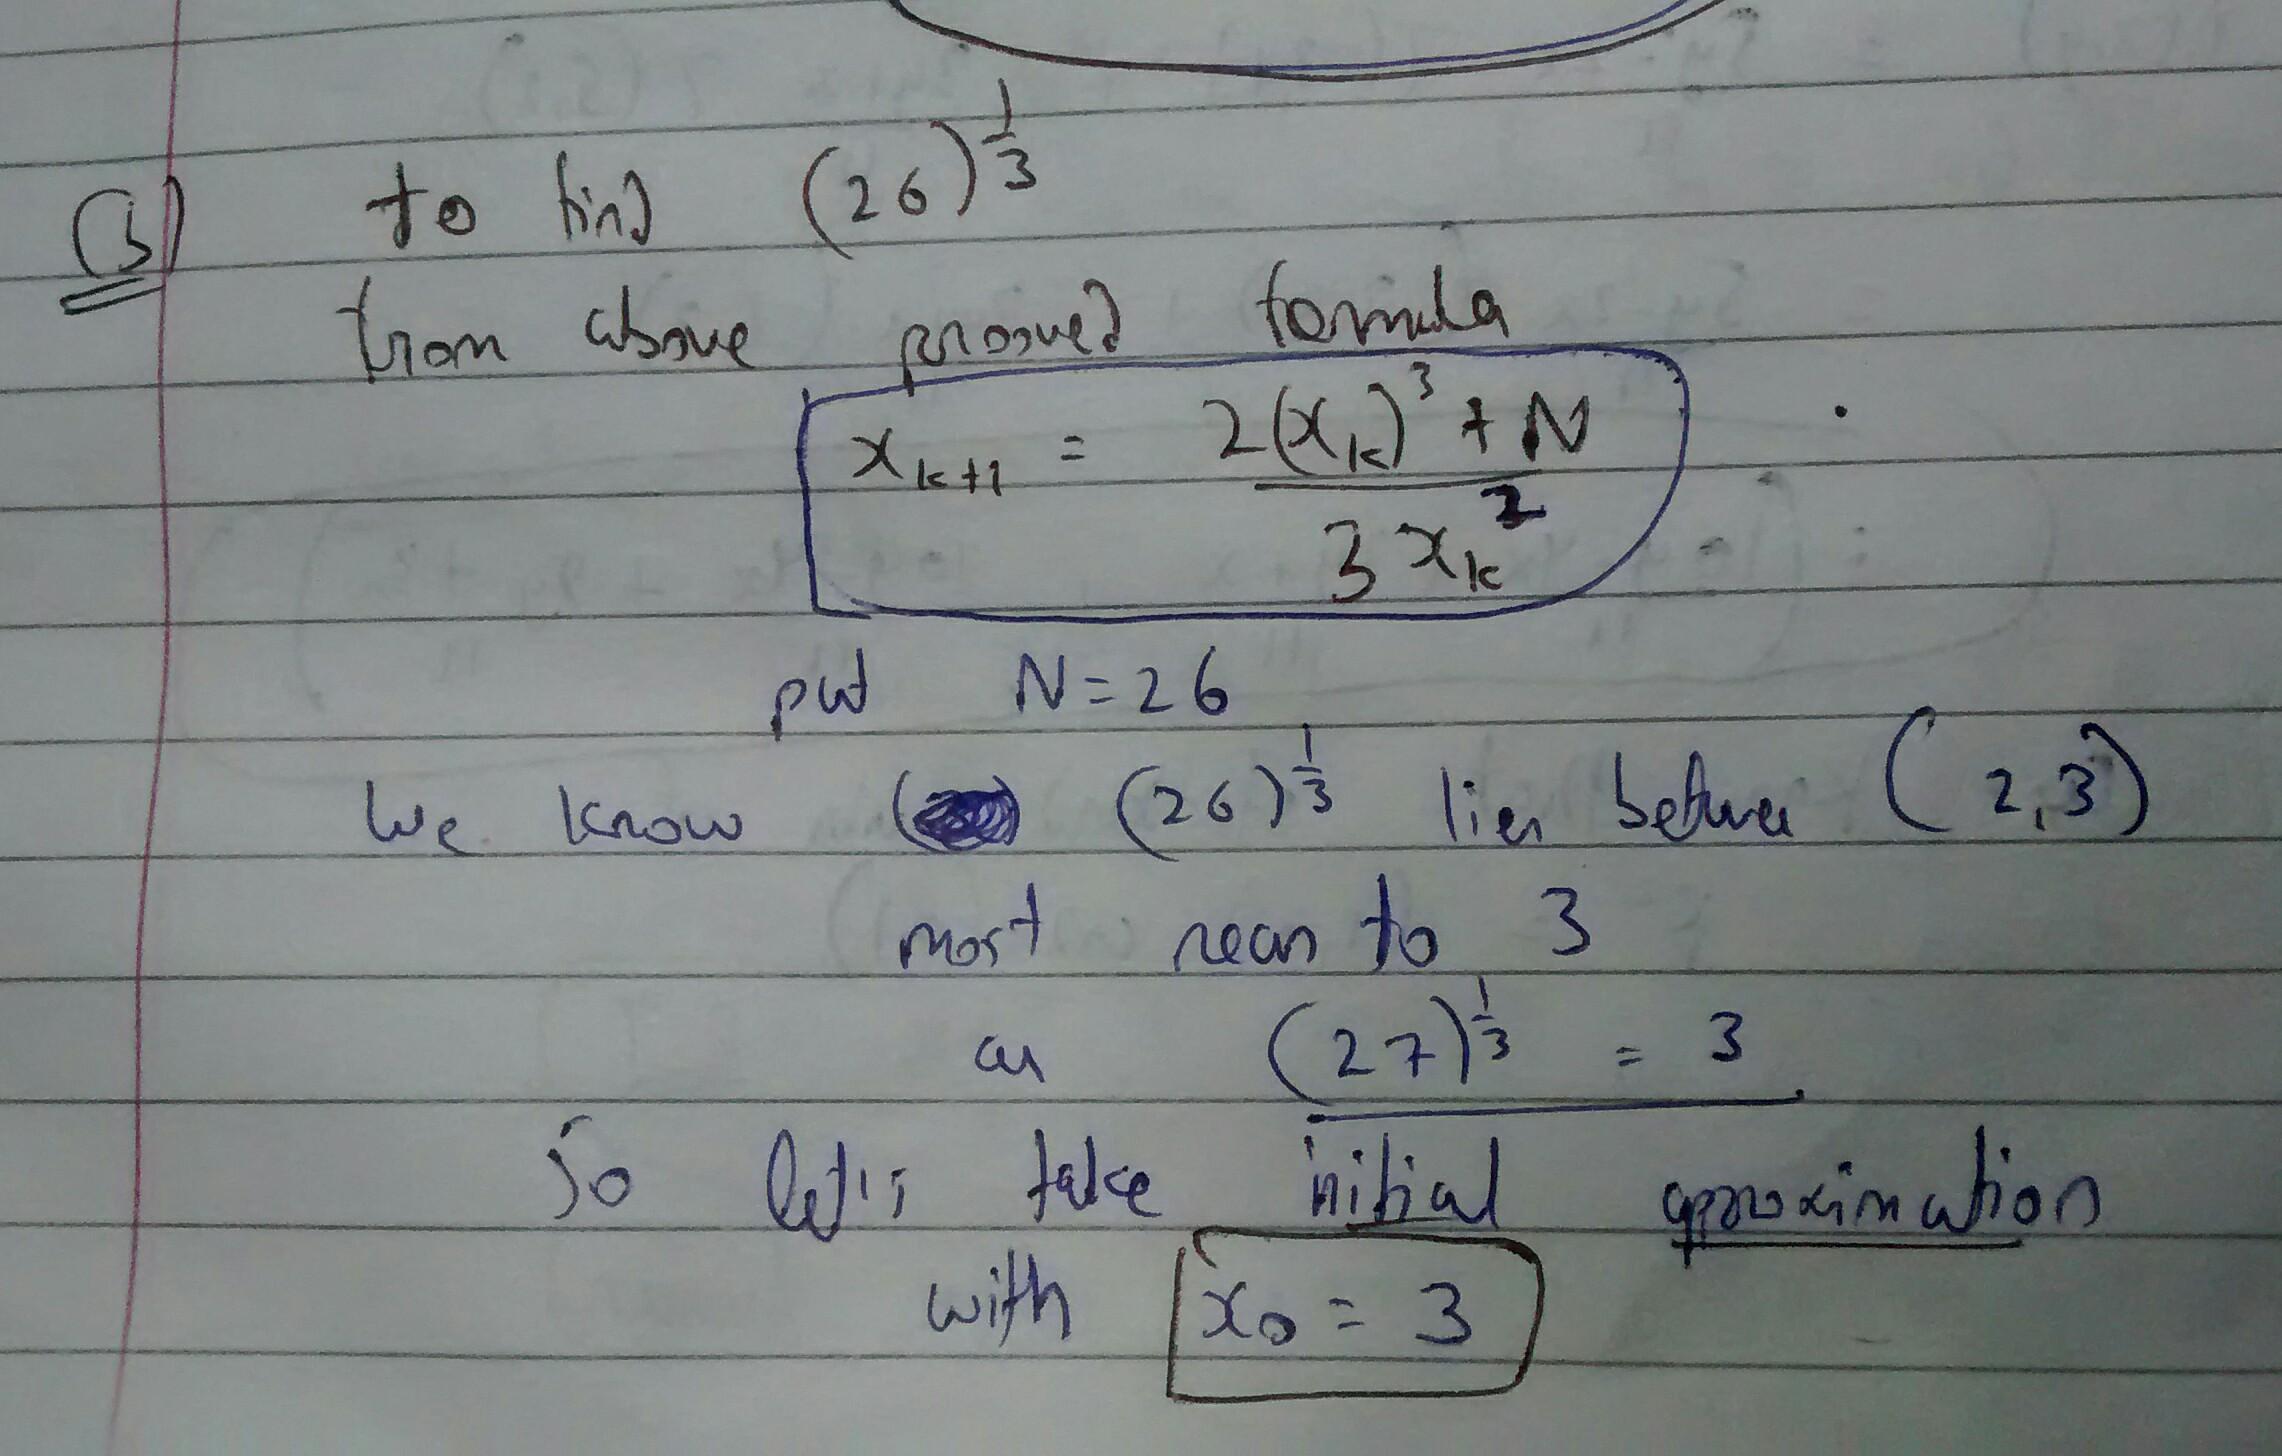 (b) to find (26)^{1/3}
from above prooved formula
x_{k+1} = \frac{2(x_k)^3 + N}{3x_k^2}
put N = 26
We know (26)^{1/3} lies between (2,3)
most near to 3
as (27)^{1/3} = 3
So let's take initial aproximation
with x_0 = 3